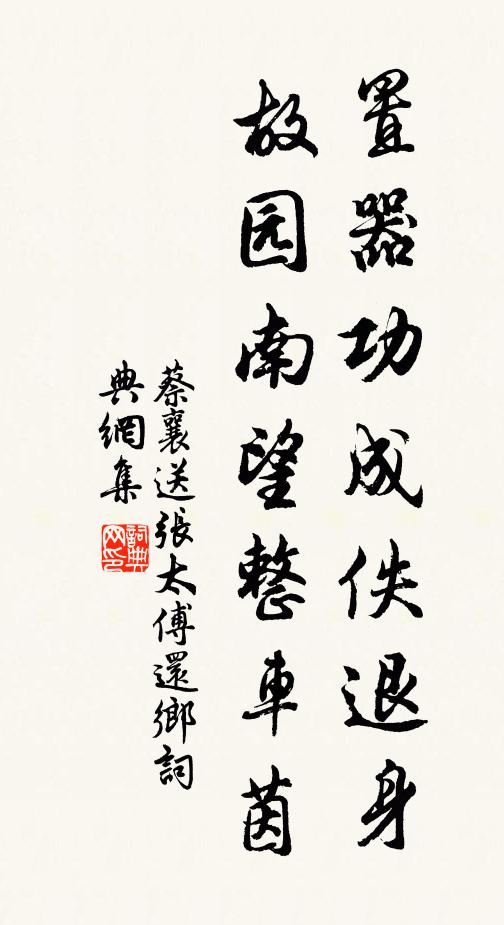 置器功成佚退身
故园南望整車茵
蔡襄送張太傅還鄉詞
典網集
詞典網印